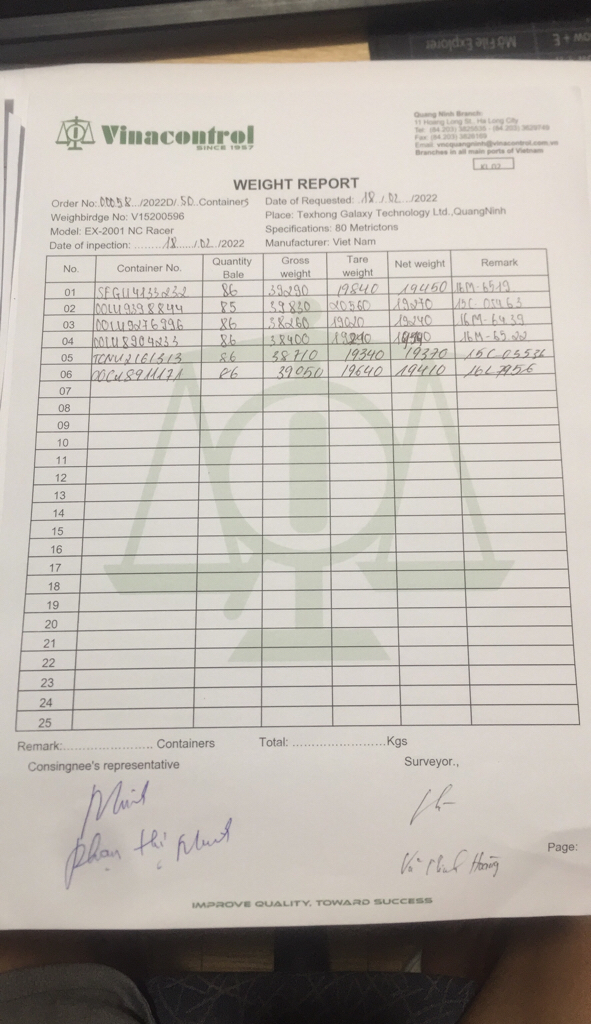 Vinacontrol
SINCE 1957
Quang Ninh Branch:
11 Hoang Long St., Ha Long City
Branches in all main ports of Vietnam
WEIGHT REPORT
Order No: 00058 /2022D/ 50 Containers Date of Requested: 18 / 02 /2022
Weighbirdge No: V15200596 Place: Texhong Galaxy Technology Ltd.,QuangNinh
Model: EX-2001 NC Racer Specifications: 80 Metrictons
Date of inpection: 18 / 02 /2022 Manufacturer: Viet Nam
No. Container No. Quantity Bale Gross weight Tare weight Net weight Remark
01 SEGU4133232 86 39290 19840 19450 16M-6519
02 OOLU9398844 85 39830 20560 19270 15C-05463
03 OOLU9276996 86 38260 19020 19240 16M-6439
04 OOLU8904233 86 38400 16M-6522
05 TCNU2161313 86 38710 19340 19370 15C-05536
06 OOCU8911171 86 39050 19640 19410 16L-7956
07
08
09
10
11
12
13
14
15
16
17
18
19
20
21
22
23
24
25
Remark:................... Containers Total: ......................Kgs
Consingnee's representative Surveyor.,
Phan thị Nhung
Hoàng
Page:
IMPROVE QUALITY, TOWARD SUCCESS